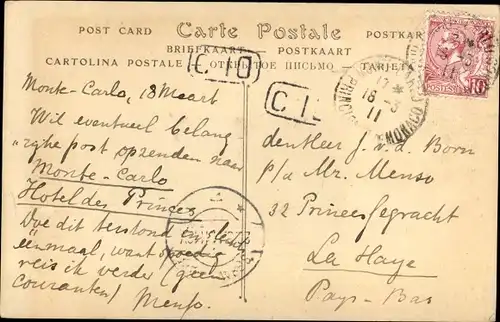 POST CARD
Carte Postale
POSTKAR
BRIEFKAART
POSTKAART
CARTOLINA POSTALE
ОТКРЫТОЕ ПИСЬМО
TARJETA
C 10
C 1
10
17
18-3
11
MONACO
Monte-Carlo, 18 Maart
Wil eventueel belang-
rijke post opzenden naar
Monte-Carlo
Hotel des Princes
Doe dit terstond en slechts
eenmaal, want spoedig
reis ik verder (geen
couranten) Menso.
den Heer J. v. d. Born
p/a Mr. Menso
32 Prinsessegracht
La Haye
Pays-Bas